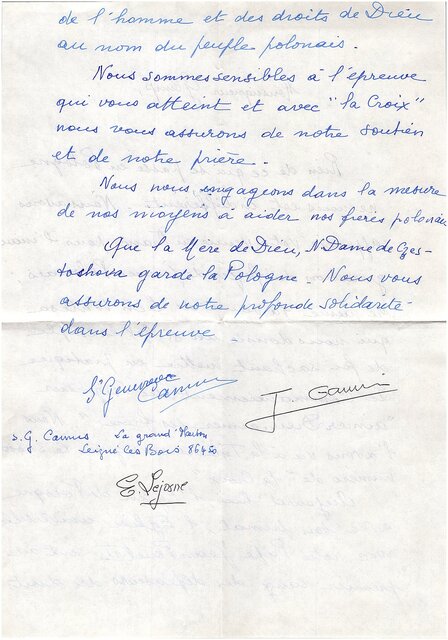 de l'homme et des droits de Dieu
au nom du peuple polonais.
Nous sommes sensibles à l'épreuve
qui vous atteint et avec "la Croix"
nous vous assurons de notre soutien
et de notre prière.
Nous nous engageons dans la mesure
de nos moyens à aider nos frères polonais.
Que la Mère de Dieu, N Dame de Czes-
toshova garde la Pologne. Nous vous
assurons de notre profonde solidarité
dans l'épreuve
Sr Geneviève
Camus
J
S. G. Camus La grand'Maison
Leigné les Bois 86450
E. Lejosne